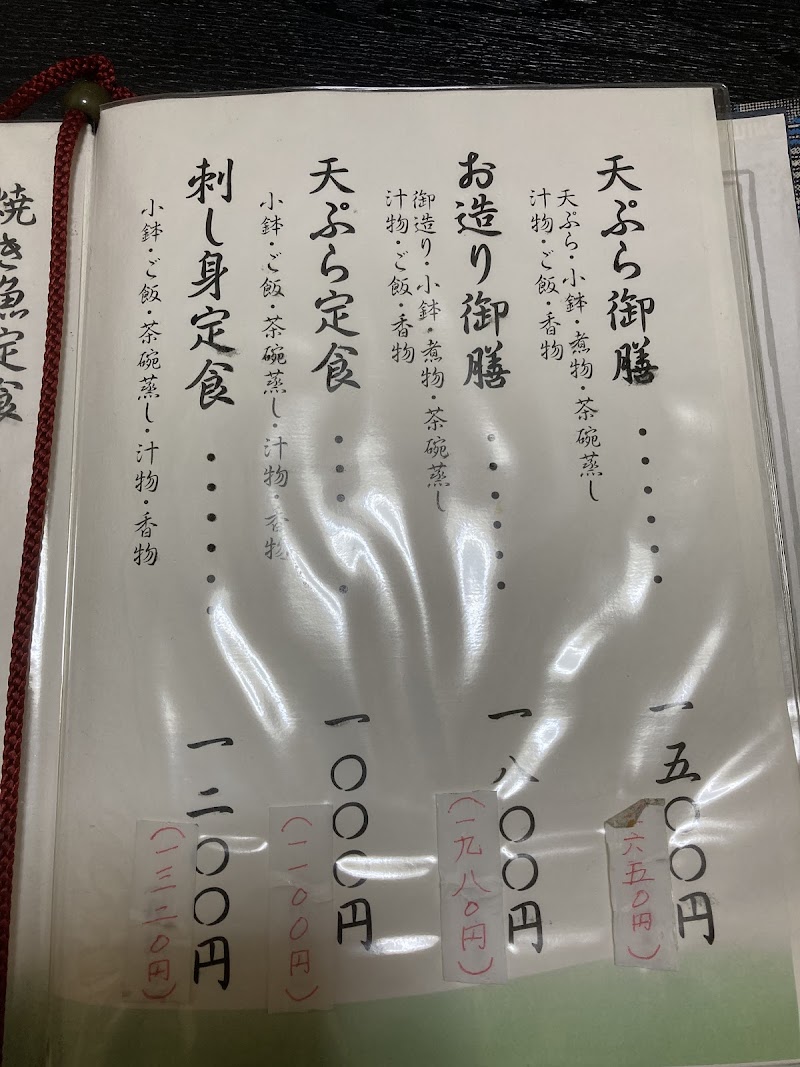 天ぷら御膳・・・・・・一五〇〇円
(一六五〇円)
天ぷら・小鉢・煮物・茶碗蒸し
汁物・ご飯・香物
お造り御膳・・・・・・一八〇〇円
(一九八〇円)
御造り・小鉢・煮物・茶碗蒸し
汁物・ご飯・香物
天ぷら定食・・・・・・一〇〇〇円
(一一〇〇円)
小鉢・ご飯・茶碗蒸し・汁物・香物
刺し身定食・・・・・・一二〇〇円
(一三二〇円)
小鉢・ご飯・茶碗蒸し・汁物・香物
焼き魚定食